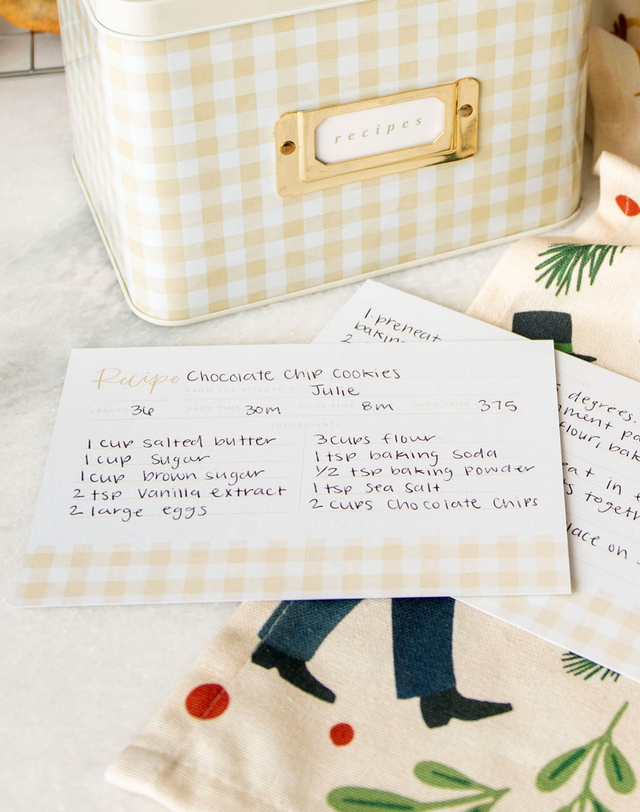 recipes
1-preheat
baking
2
Recipe Chocolate Chip Cookies
FROM THE KITCHEN OF Julie
SERVES 36 PREP TIME 30m COOK TIME 8m OVEN TEMP 375
INGREDIENTS
1 cup salted butter
1 cup sugar
1 cup brown sugar
2 tsp vanilla extract
2 large eggs
3 cups flour
1 tsp baking soda
1/2 tsp baking powder
1 tsp sea salt
2 cups chocolate chips
degrees.
flour, bak
in
together
place on